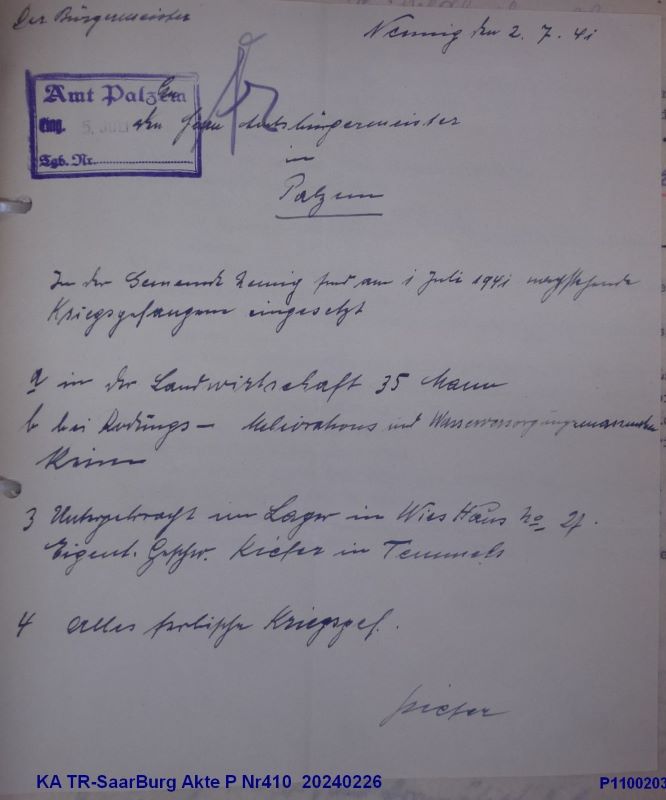 Der Bürgermeister
Nennig den 2. 7. 41
Amt Palzem
Eing. 5. Juli
Tgb. Nr.
An
den Herrn Amtsbürgermeister
in
Palzem
In der Gemeinde Nennig sind am 1 Juli 1941 nachstehende
Kriegsgefangene eingesetzt
a in der Landwirtschaft 35 Mann
b bei Rodungs- Meliorations und Wasserversorgungsmassnahmen
Keine
3 Untergebracht im Lager in Wies Haus No 27.
Eigent. Geschw. Kiefer in Temmels
4 Alles serbische Kriegsgef.
Kiefer
KA TR-SaarBurg Akte P Nr410 20240226
P1100203